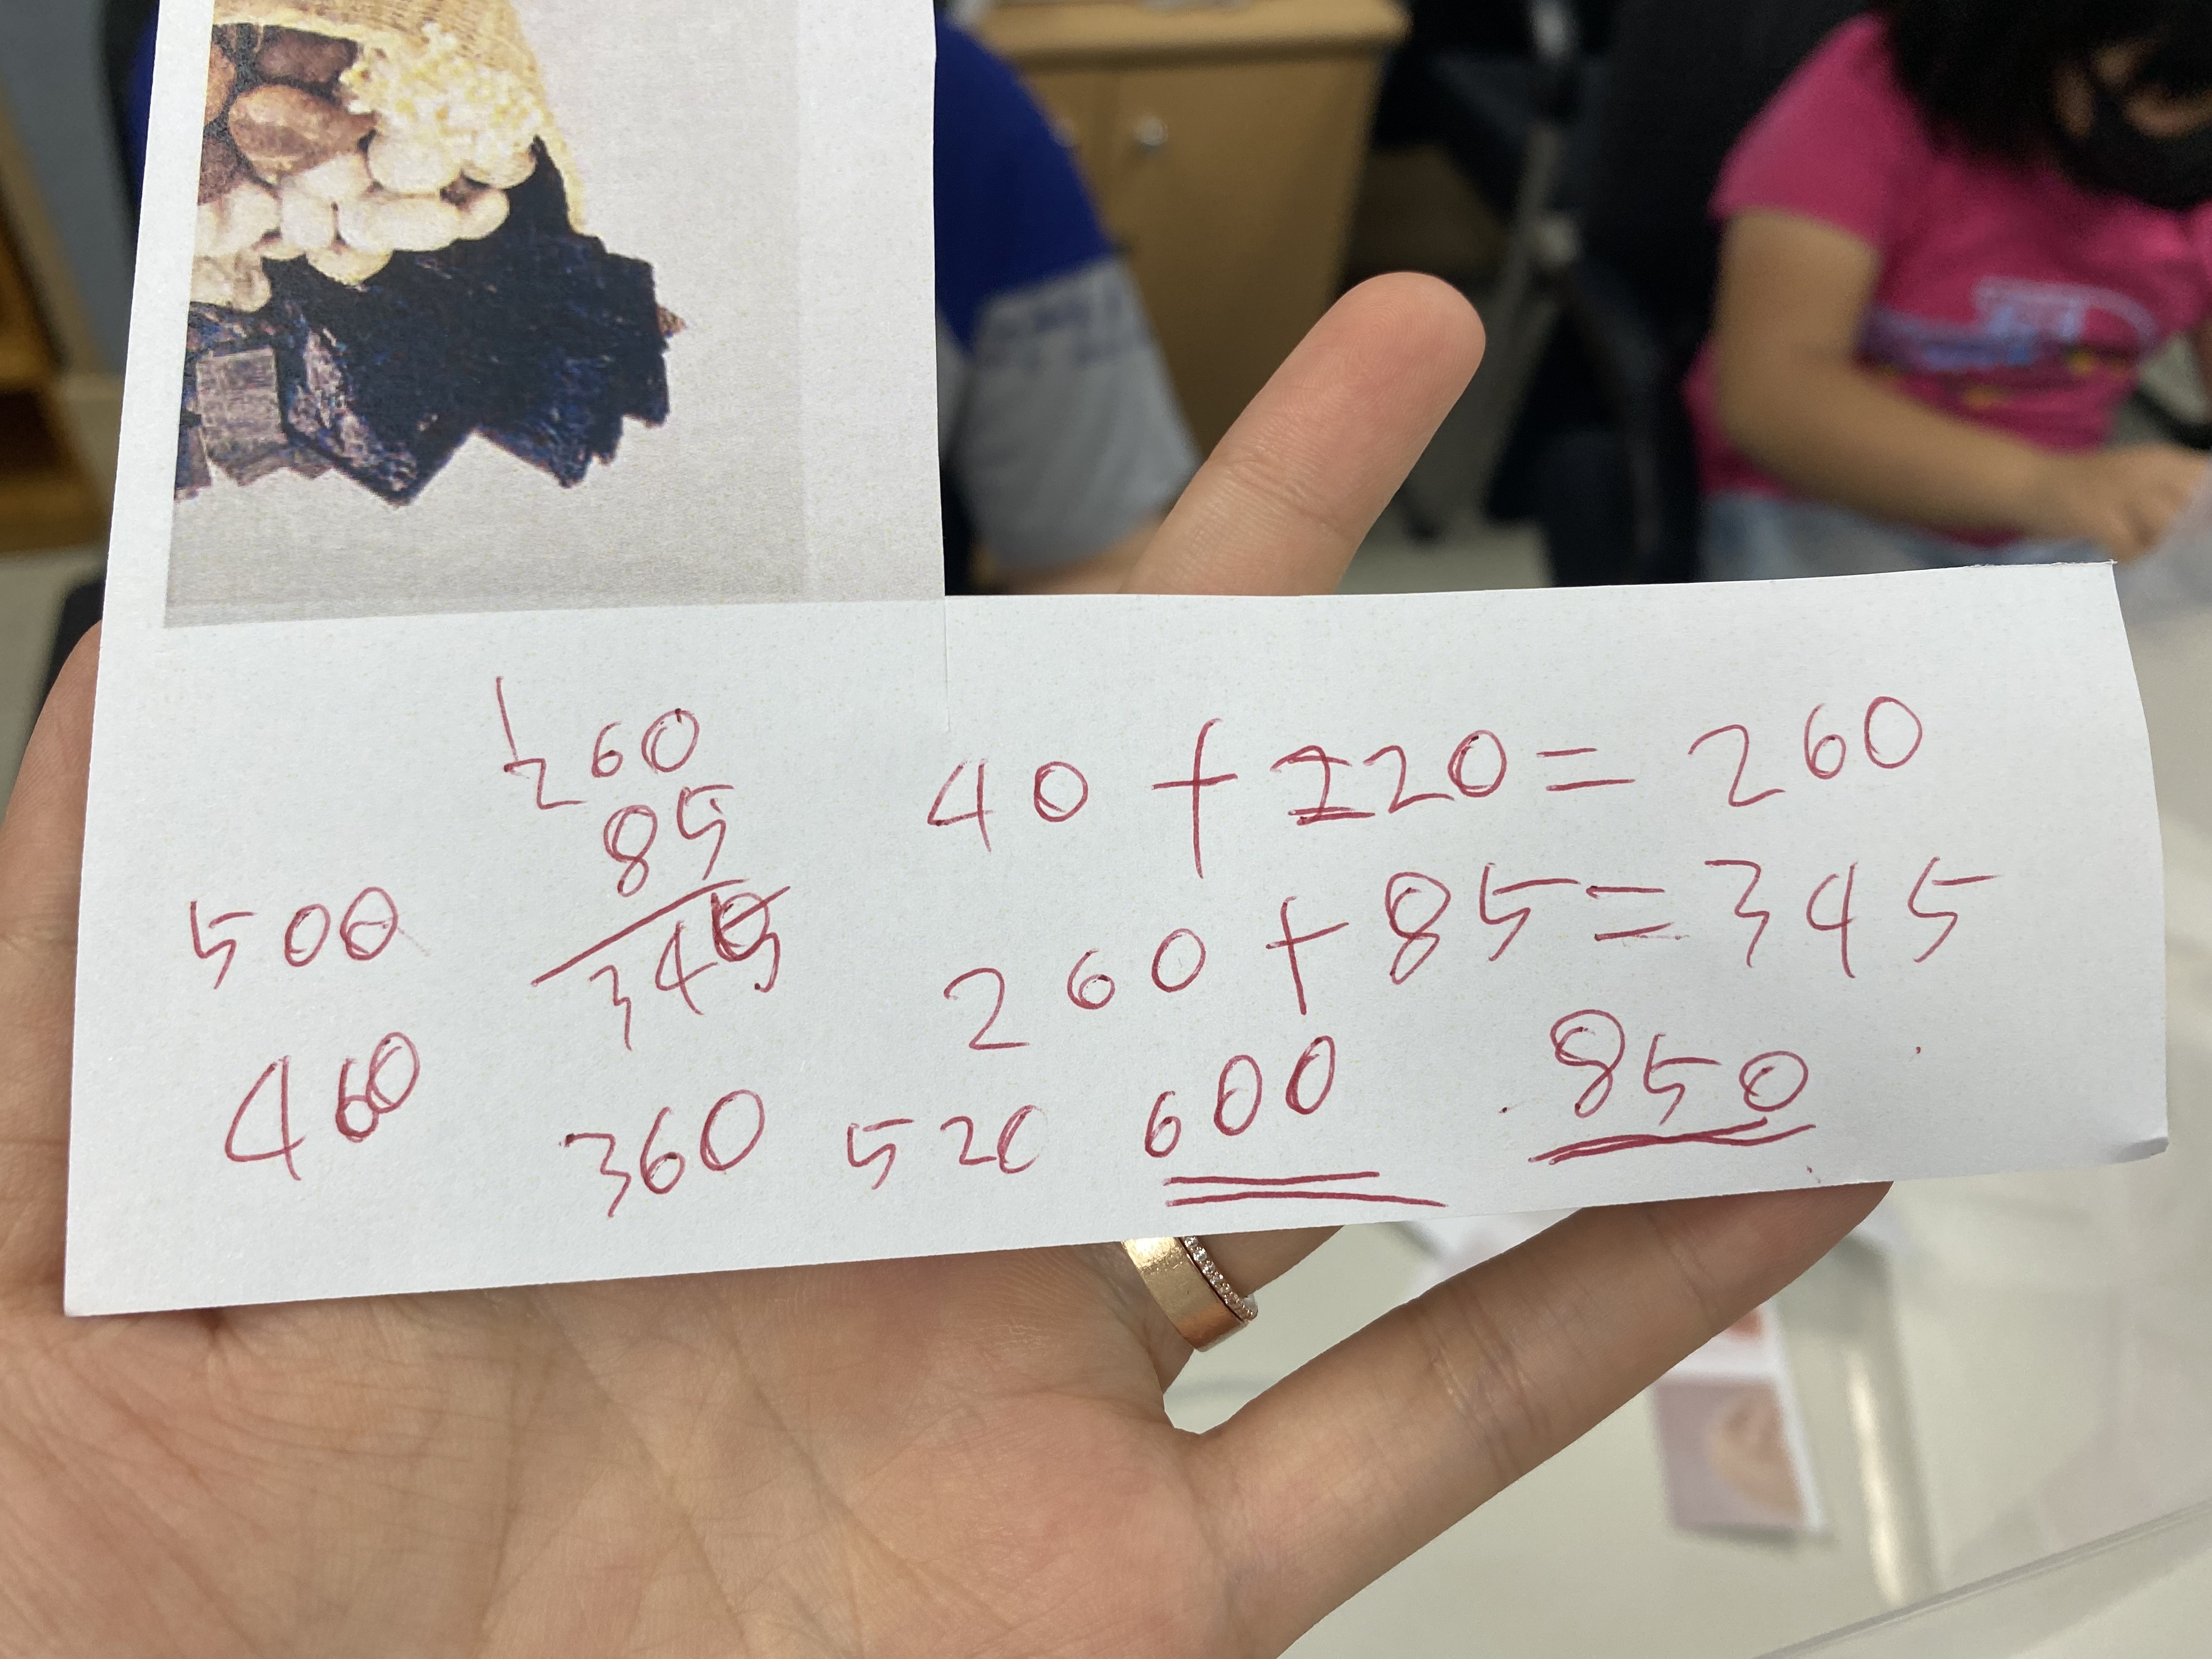 1
260
85
345
40 + 220 = 260
260 + 85 = 345
500
460
360 520 600 850